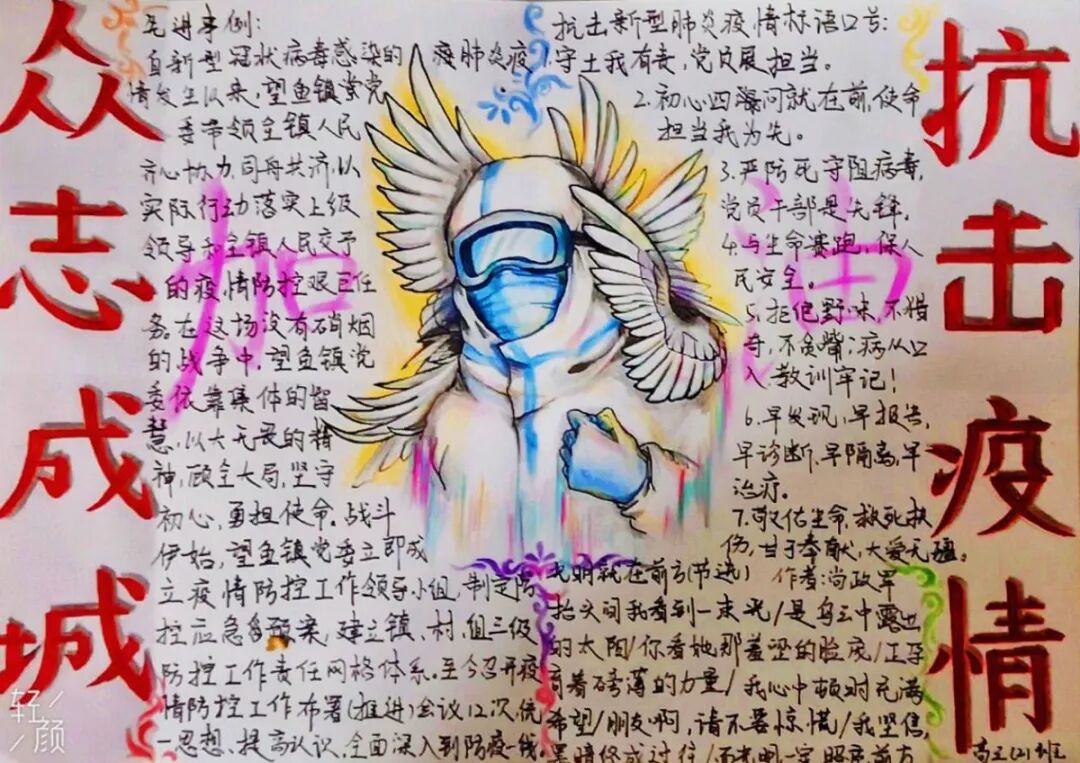 众志成城
先进事例:
自新型冠状病毒感染的 疫肺炎疫
情发生以来,望鱼镇党党
委带领全镇人民
齐心协力,同舟共济,以
实际行动落实上级
领导和全镇人民交予
的疫情防控艰巨任
务。在这场没有硝烟
的战争中,望鱼镇党
委依靠集体的智
慧,以大无畏的精
神,顾全大局,坚守
初心,勇担使命。战斗
伊始,望鱼镇党委立即成
立疫情防控工作领导小组,制定防
控应急预案,建立镇、村、组三级
防控工作责任网格体系。至今召开疫
情防控工作布署(推进)会议12次,统
一思想、提高认识、全面深入到防疫一线。
加油
抗击新型肺炎疫情标语口号:
1.守土我有责,党员展担当。
2.初心四海问就在前,使命
担当我为先。
3.严防死守阻病毒,
党员干部是先锋,
4.与生命赛跑,保人
民安全。
5.拒绝野味,不猎
奇,不贪嘴;病从口
入,教训牢记!
6.早发现,早报告,
早诊断,早隔离,早
治疗。
7.敬佑生命,救死扶
伤,甘于奉献,大爱无疆。
光明就在前方(节选) 作者:尚政军
抬头间我看到一束光/是乌云中露出
的太阳/你看她那羞涩的脸庞/正孕
育着磅薄的力量/我心中顿时充满
希望/朋友啊,请不要惊慌/我坚信,
黑暗终成过往/而光明一定照亮前方
抗击疫情
高三(2)班
轻颜